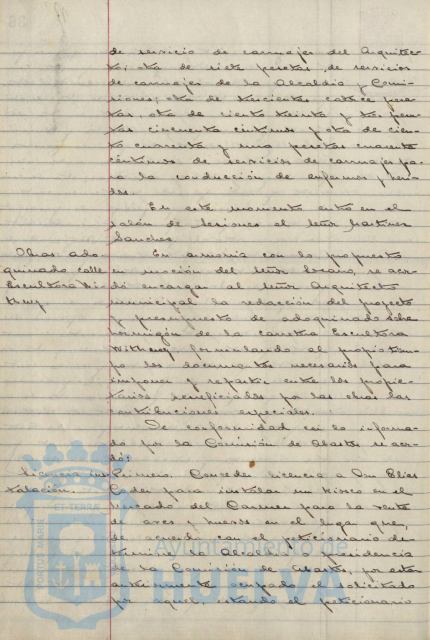 de servicio de carruajes del Arquitec-
to; otra de siete pesetas, de servicios
de carruajes de la Alcaldía y Comi-
siones; otra de trescientas catorce pese-
tas, otra de ciento treinta y tres pese-
tas cincuenta céntimos y otra de cien-
to cuarenta y una pesetas cuarenta
céntimos de servicios de carruajes pa-
ra la conducción de enfermos y heri-
dos.
En este momento entró en el
salón de Sesiones el Señor Martínez
Sanchez
Obras: ado-
quinado calle
Escultora Wi-
thney
En armonía con lo propuesto
en moción del Señor, se acor-
dó encargar al Señor Arquitecto
municipal la redacción del proyecto
y presupuesto de adoquinado sobre
hormigón de la carretera Escultora
Withney formulando al propio tiem-
po los documentos necesarios para
imponer y repartir entre los propie-
tarios beneficiados por las obras las
contribuciones especiales.
De conformidad con lo informa-
do por la Comisión de Abastos se acor-
dó:
Licencia ins-
talación.
Primero. Conceder licencia a Don Elias
para instalar un kiosco en el
Mercado del Carmen para la venta
de aves y huevos en el lugar que,
de acuerdo con el peticionario de-
la Alcaldía Presidencia
de la Comisión de Abastos, por estar
anteriormente ocupado el solicitado
por aquel, estando el peticionario
PORTUS MARIS
ET TERRAE
Ayuntamiento de
HUELVA